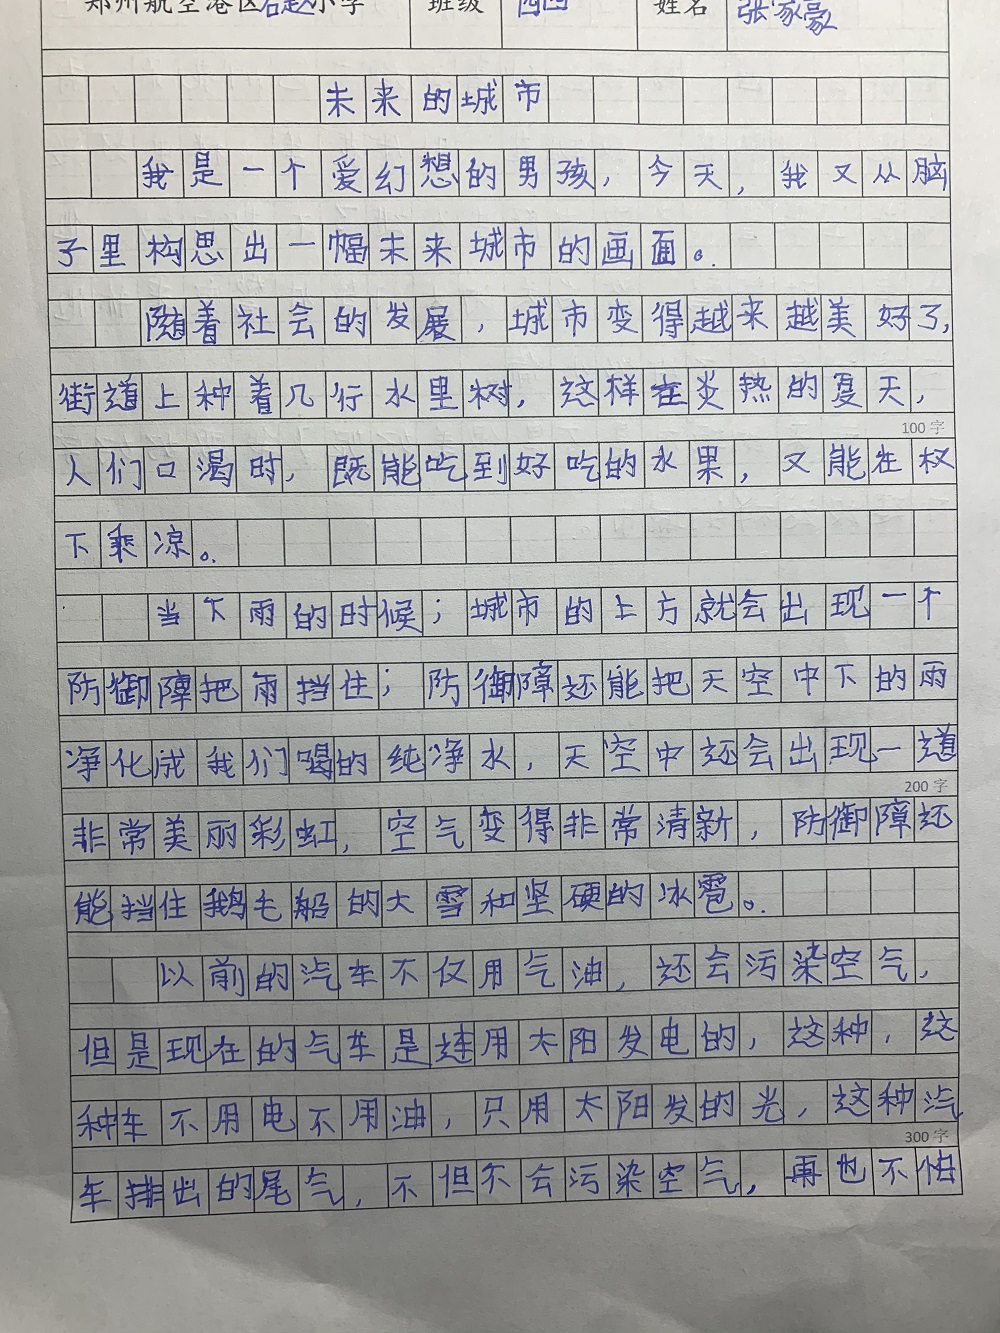 郑州航空港区 小学 班级 四四 姓名 张家豪
未来的城市
我是一个爱幻想的男孩，今天，我又从脑
子里构思出一幅未来城市的画面。
随着社会的发展，城市变得越来越美好了，
街道上种着几行水里树，这样在炎热的夏天，
100字
人们口渴时，既能吃到好吃的水果，又能在权
下乘凉。
当下雨的时候；城市的上方就会出现一个
防御障把雨挡住；防御障还能把天空中下的雨
净化成我们喝的纯净水，天空中还会出现一道
200字
非常美丽彩虹，空气变得非常清新，防御障还
能挡住鹅毛船的大雪和坚硬的冰雹。
以前的汽车不仅用气油，还会污染空气，
但是现在的气车是连用太阳发电的，这种，这
种车不用电不用油，只用太阳发的光，这种汽
300字
车排出的尾气，不但不会污染空气，再也不怕